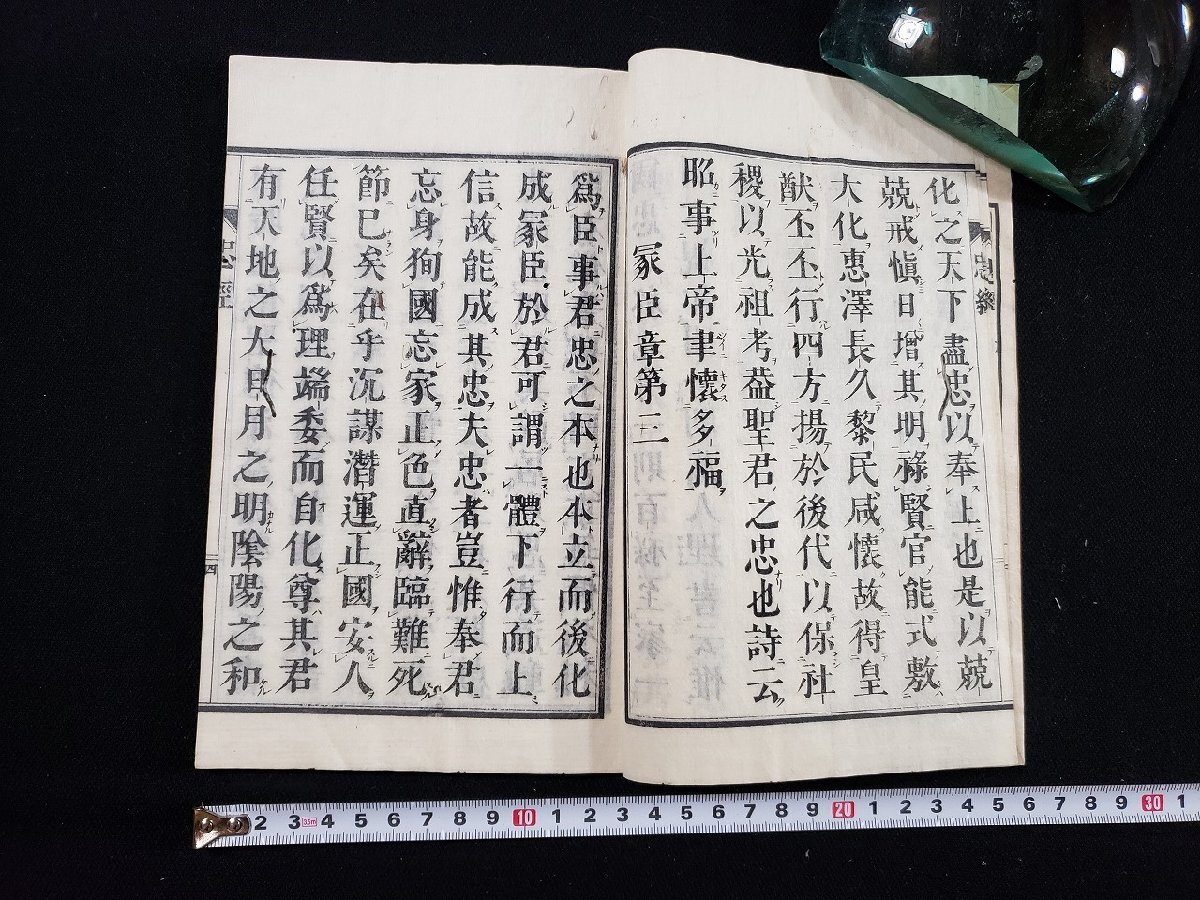 化之天下盡忠以奉上也是以兢
兢戒愼日增其明祿賢官能式敷
大化惠澤長久黎民咸懷故得皇
猷丕丕行四方揚於後代以保社
稷以光祖考葢聖君之忠也詩云
昭事上帝聿懷多福
冢臣章第三
爲臣事君忠之本也本立而後化
成冢臣於君可謂一體下行而上
信故能成其忠夫忠者豈惟奉君
忘身徇國忘家正色直辭臨難死
節已矣在乎沉謀潛運正國安人
任賢以爲理端委而自化尊其君
有天地之大日月之明陰陽之和
忠經
四
2 3 4 5 6 7 8 9 10 1 2 3 4 5 6 7 8 9 20 1 2 3 4 5 6 7 8 9 30 1